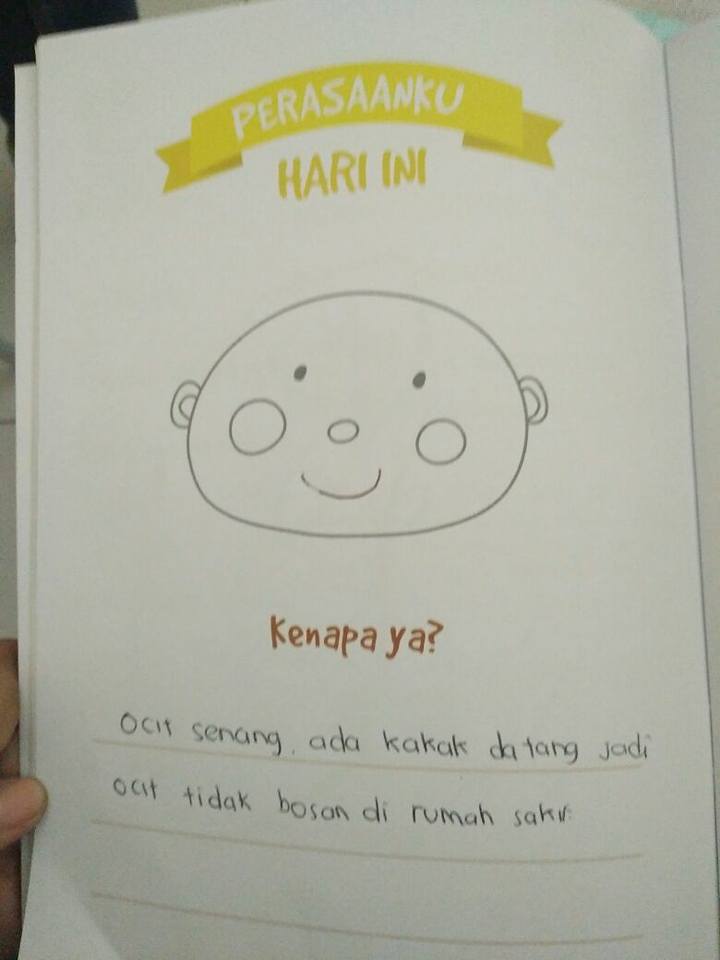 PERASAANKU
HARI INI
Kenapa ya?
Ocit senang, ada kakak datang jadi
ocit tidak bosan di rumah sakit